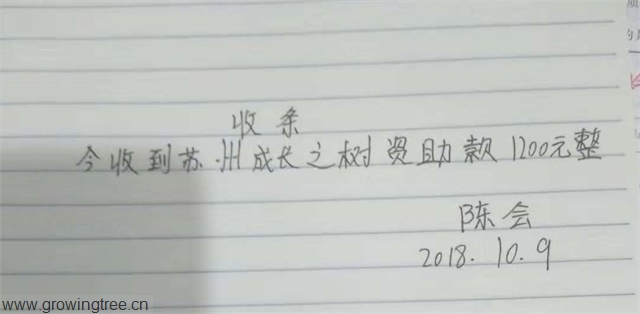 收条
今收到苏州成长之树资助款1200元整
陈会
2018.10.9
www.growingtree.cn